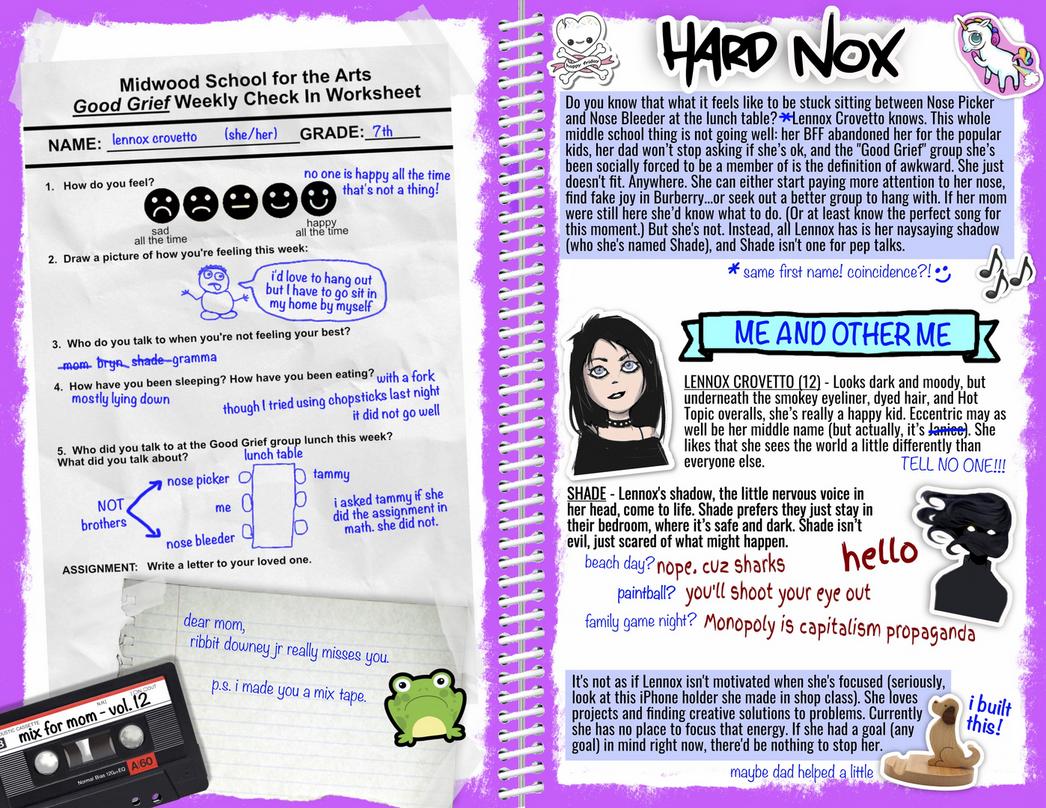 Midwood School for the Arts
Good Grief Weekly Check In Worksheet
NAME: lennox crovetto (she/her) GRADE: 7th
1. How do you feel?
no one is happy all the time
that's not a thing!
sad
all the time
happy
all the time
2. Draw a picture of how you're feeling this week:
i'd love to hang out
but I have to go sit in
my home by myself
3. Who do you talk to when you're not feeling your best?
mom bryn shade gramma
4. How have you been sleeping? How have you been eating?
mostly lying down
with a fork
though I tried using chopsticks last night
it did not go well
5. Who did you talk to at the Good Grief group lunch this week?
What did you talk about?
lunch table
NOT
brothers
nose picker
me
nose bleeder
tammy
i asked tammy if she
did the assignment in
math. she did not.
ASSIGNMENT: Write a letter to your loved one.
dear mom,
ribbit downey jr really misses you.
p.s. i made you a mix tape.
mix for mom - vol. 12
Normal Bias 120μsEQ
A/60
happy friday
HARD NOX
Do you know that what it feels like to be stuck sitting between Nose Picker
and Nose Bleeder at the lunch table? *Lennox Crovetto knows. This whole
middle school thing is not going well: her BFF abandoned her for the popular
kids, her dad won't stop asking if she's ok, and the "Good Grief" group she's
been socially forced to be a member of is the definition of awkward. She just
doesn't fit. Anywhere. She can either start paying more attention to her nose,
find fake joy in Burberry...or seek out a better group to hang with. If her mom
were still here she'd know what to do. (Or at least know the perfect song for
this moment.) But she's not. Instead, all Lennox has is her naysaying shadow
(who she's named Shade), and Shade isn't one for pep talks.
* same first name! coincidence?!
ME AND OTHER ME
LENNOX CROVETTO (12) - Looks dark and moody, but
underneath the smokey eyeliner, dyed hair, and Hot
Topic overalls, she's really a happy kid. Eccentric may as
well be her middle name (but actually, it's Janice). She
likes that she sees the world a little differently than
everyone else.
TELL NO ONE!!!
SHADE - Lennox's shadow, the little nervous voice in
her head, come to life. Shade prefers they just stay in
their bedroom, where it's safe and dark. Shade isn't
evil, just scared of what might happen.
hello
beach day? nope. cuz sharks
paintball? you'll shoot your eye out
family game night? Monopoly is capitalism propaganda
It's not as if Lennox isn't motivated when she's focused (seriously,
look at this iPhone holder she made in shop class). She loves
projects and finding creative solutions to problems. Currently
she has no place to focus that energy. If she had a goal (any
goal) in mind right now, there'd be nothing to stop her.
i built
this!
maybe dad helped a little